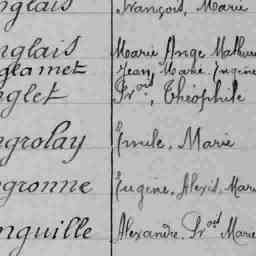 nglais François, Marie
nglais Marie Ange Mathurin
glamet Jean, Marie, Eugène
nglet Fr.ois, Théophile
ngrolay Emile, Marie
ngronne Eugène, Alexis, Mari
nguille Alexandre, Fr.ois Marie